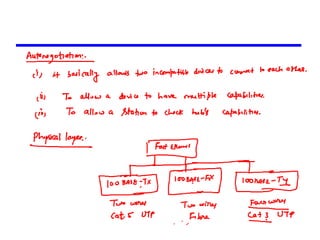 Autonegotiation:.
(i), it basically allows two incompatible devices to connect to each other.
(ii) To allow a device to have multiple capabilities.
(iii) To allow a station to check hub's capabilities.
Physical layer:.
Fast Ethernet
100 BASE-TX 100 BASE-FX 100 BASE-T4
Two wires Two wires Four wires
Cat 5 UTP Fibre Cat 3 UTP